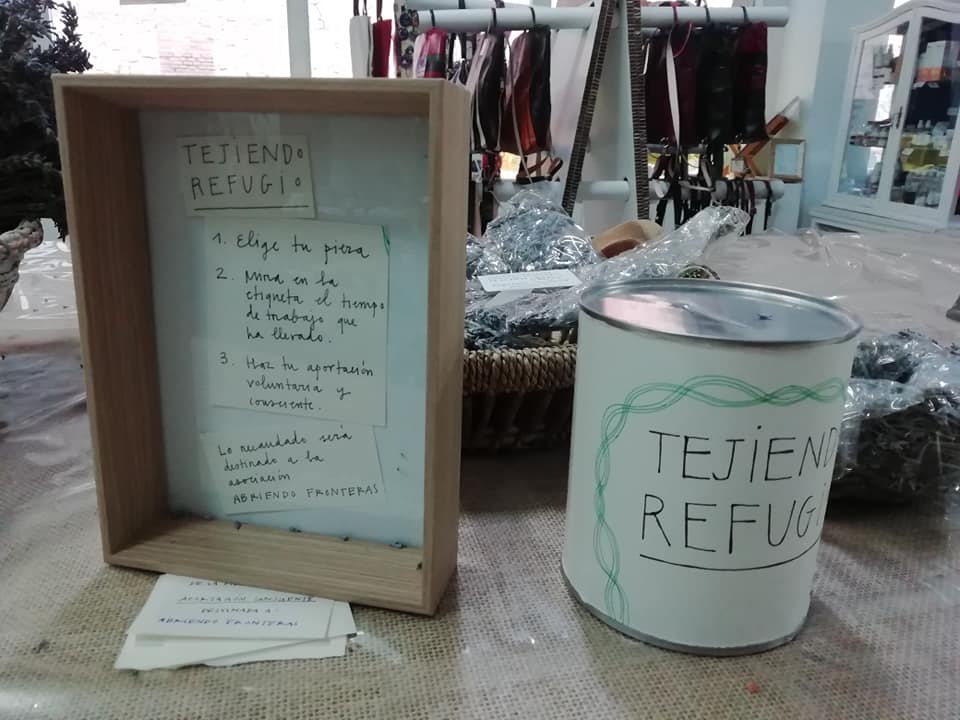 TEJIENDO
REFUGIO
1. Elige tu pieza
2. Mira en la
etiqueta el tiempo
de trabajo que
ha llevado.
3. Haz tu aportación
voluntaria y
consciente.
Lo recaudado será
destinado a la
asociación
ABRIENDO FRONTERAS
DE LA
APORTACIÓN CONSCIENTE
DESTINADA A:
ABRIENDO FRONTERAS
TEJIEND
REFUGI